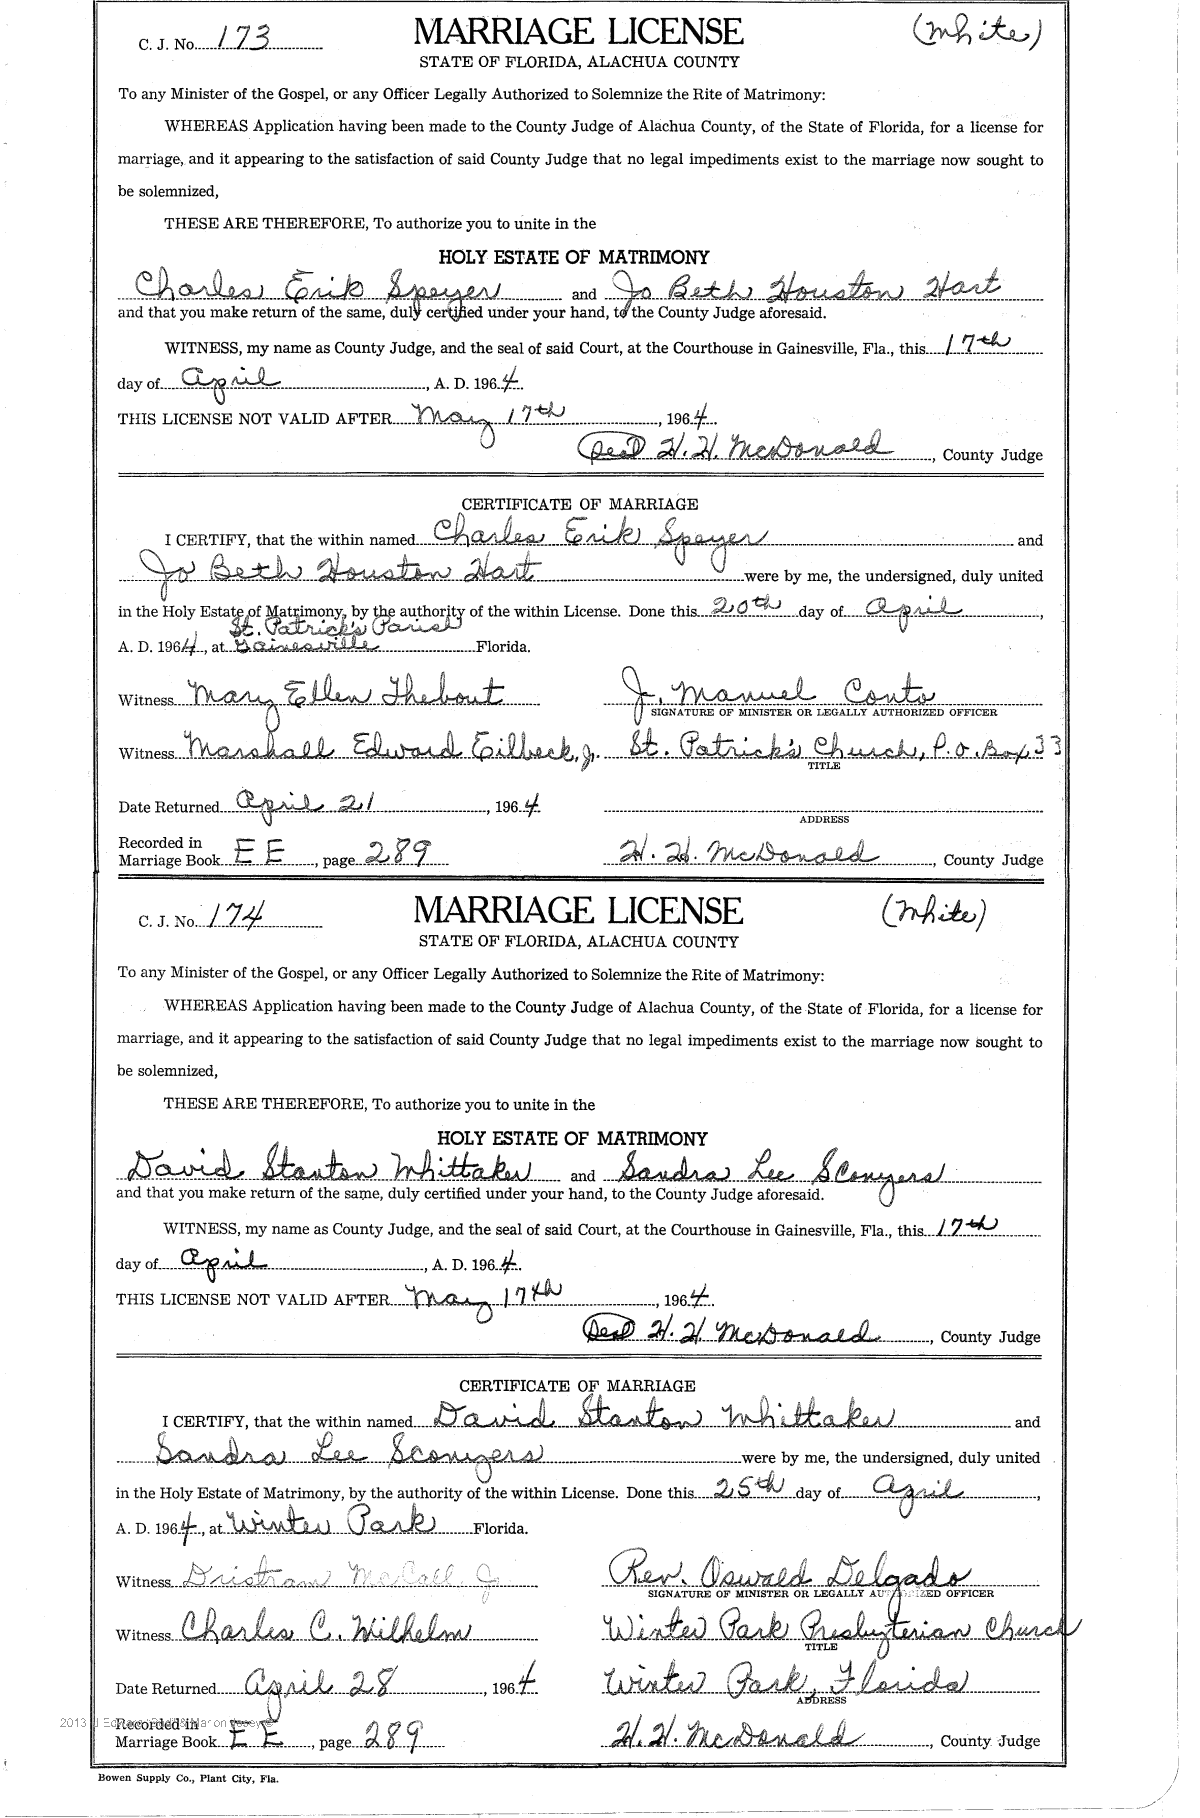 C. J. No. 173 MARRIAGE LICENSE (White)
STATE OF FLORIDA, ALACHUA COUNTY
To any Minister of the Gospel, or any Officer Legally Authorized to Solemnize the Rite of Matrimony:
WHEREAS Application having been made to the County Judge of Alachua County, of the State of Florida, for a license for
marriage, and it appearing to the satisfaction of said County Judge that no legal impediments exist to the marriage now sought to
be solemnized,
THESE ARE THEREFORE, To authorize you to unite in the
HOLY ESTATE OF MATRIMONY
Charles Erik Speyer and Jo Beth Houston Hart
and that you make return of the same, duly certified under your hand, to the County Judge aforesaid.
WITNESS, my name as County Judge, and the seal of said Court, at the Courthouse in Gainesville, Fla., this 17th
day of April, A. D. 1964.
THIS LICENSE NOT VALID AFTER May 17th, 1964.
(Seal) H. H. McDonald, County Judge
CERTIFICATE OF MARRIAGE
I CERTIFY, that the within named Charles Erik Speyer and
Jo Beth Houston Hart were by me, the undersigned, duly united
in the Holy Estate of Matrimony, by the authority of the within License. Done this 20th day of April,
St. Patrick's Parish
A. D. 1964, at Gainesville Florida.
Witness Mary Ellen Thebout J. Manuel Conto
SIGNATURE OF MINISTER OR LEGALLY AUTHORIZED OFFICER
Witness Marshall Edward Eilbeck, Jr. St. Patrick's Church, P.O. Box 33
TITLE
Date Returned April 21, 1964
ADDRESS
Recorded in
Marriage Book E E, page 289 H. H. McDonald, County Judge
C. J. No. 174 MARRIAGE LICENSE (White)
STATE OF FLORIDA, ALACHUA COUNTY
To any Minister of the Gospel, or any Officer Legally Authorized to Solemnize the Rite of Matrimony:
WHEREAS Application having been made to the County Judge of Alachua County, of the State of Florida, for a license for
marriage, and it appearing to the satisfaction of said County Judge that no legal impediments exist to the marriage now sought to
be solemnized,
THESE ARE THEREFORE, To authorize you to unite in the
HOLY ESTATE OF MATRIMONY
David Stanton Whittaker and Sandra Lee Sconyers
and that you make return of the same, duly certified under your hand, to the County Judge aforesaid.
WITNESS, my name as County Judge, and the seal of said Court, at the Courthouse in Gainesville, Fla., this 17th
day of April, A. D. 1964.
THIS LICENSE NOT VALID AFTER May 17th, 1964.
(Seal) H. H. McDonald, County Judge
CERTIFICATE OF MARRIAGE
I CERTIFY, that the within named David Stanton Whittaker and
Sandra Lee Sconyers were by me, the undersigned, duly united
in the Holy Estate of Matrimony, by the authority of the within License. Done this 25th day of April,
A. D. 1964, at Winter Park Florida.
Witness Dristram McCall Jr Rev. Oswald Delgado
SIGNATURE OF MINISTER OR LEGALLY AUTHORIZED OFFICER
Witness Charles C. Wilhelm Winter Park Presbyterian Church
TITLE
Date Returned April 28, 1964 Winter Park, Florida
ADDRESS
2013
Recorded in
Marriage Book E E, page 289 H. H. McDonald, County Judge
Bowen Supply Co., Plant City, Fla.